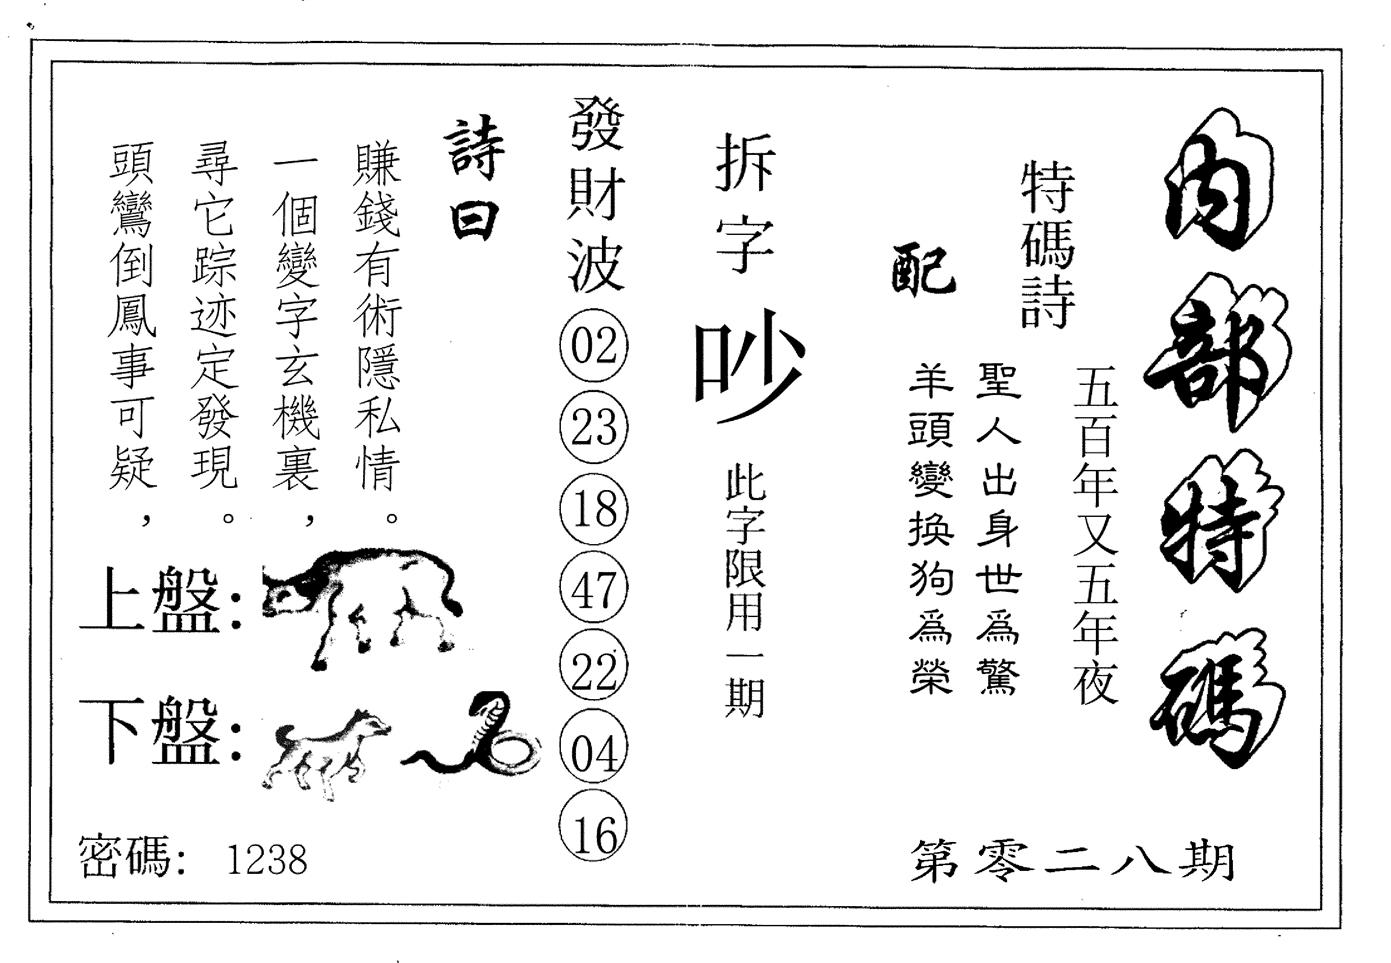 內部特碼
特碼詩
五百年又五年夜
配
聖人出身世為驚
羊頭變換狗為榮
第零二八期
拆字
吵
此字限用一期
發財波
02
23
18
47
22
04
16
詩曰
賺錢有術隱私情。
一個變字玄機裏，
尋它踪迹定發現。
頭鸞倒鳳事可疑，
上盤：
下盤：
密碼： 1238